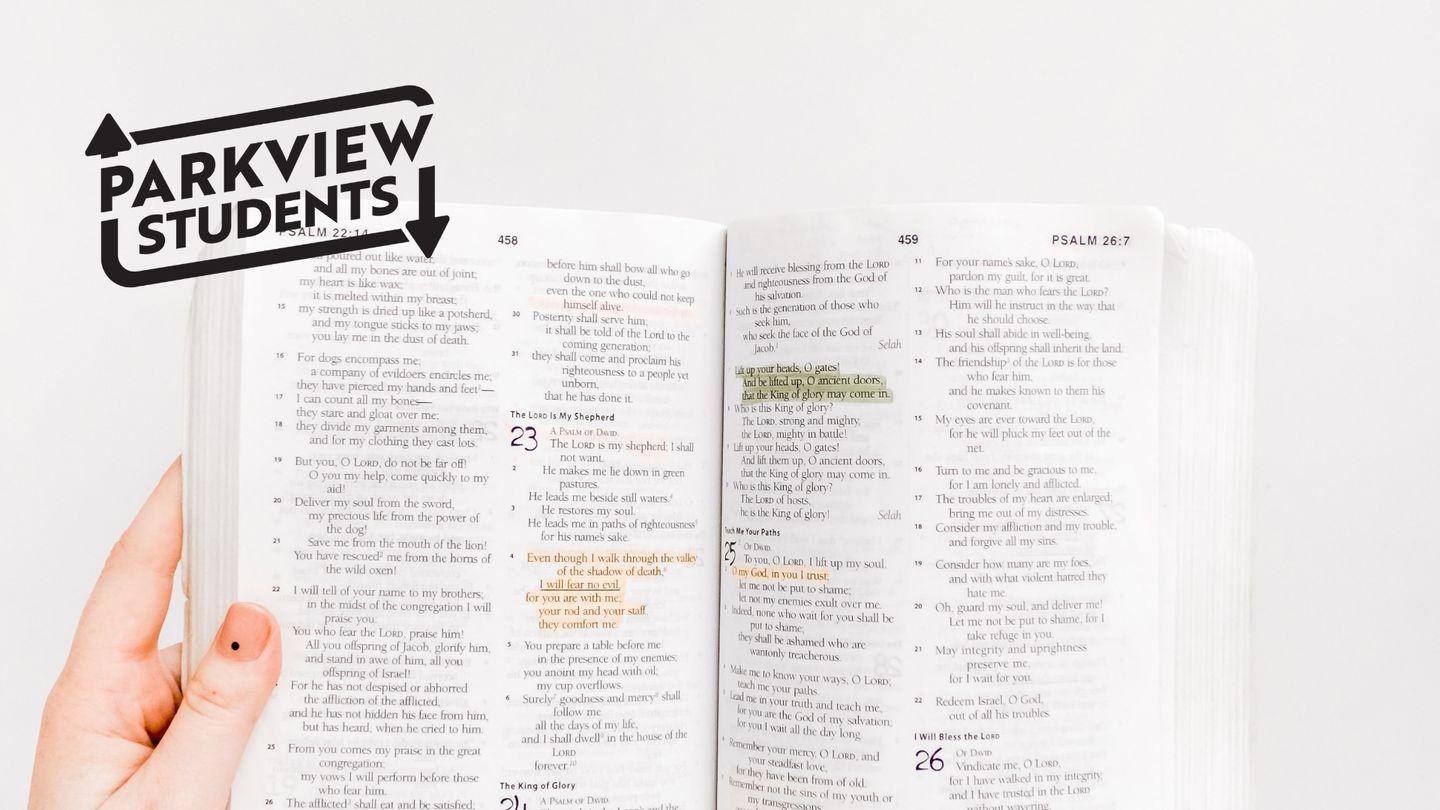 PARKVIEW
STUDENTS
PSALM 22:14
458
poured out like water,
and all my bones are out of joint;
my heart is like wax;
it is melted within my breast;
15 my strength is dried up like a potsherd,
and my tongue sticks to my jaws;
you lay me in the dust of death.
16 For dogs encompass me;
a company of evildoers encircles me;
they have pierced my hands and feet—
17 I can count all my bones—
they stare and gloat over me;
18 they divide my garments among them,
and for my clothing they cast lots.
19 But you, O LORD, do not be far off!
O you my help, come quickly to my
aid!
20 Deliver my soul from the sword,
my precious life from the power of
the dog!
21 Save me from the mouth of the lion!
You have rescued² me from the horns of
the wild oxen!
22 I will tell of your name to my brothers;
in the midst of the congregation I will
praise you:
You who fear the LORD, praise him!
All you offspring of Jacob, glorify him,
and stand in awe of him, all you
offspring of Israel!
For he has not despised or abhorred
the affliction of the afflicted,
and he has not hidden his face from him,
but has heard, when he cried to him.
25 From you comes my praise in the great
congregation;
my vows I will perform before those
who fear him.
26 The afflicted shall eat and be satisfied;
before him shall bow all who go
down to the dust,
even the one who could not keep
himself alive.
30 Posterity shall serve him;
it shall be told of the Lord to the
coming generation;
31 they shall come and proclaim his
righteousness to a people yet
unborn,
that he has done it.
The LORD Is My Shepherd
23 A PSALM OF DAVID.
The LORD is my shepherd; I shall
not want.
2 He makes me lie down in green
pastures.
He leads me beside still waters.⁴
3 He restores my soul.
He leads me in paths of righteousness⁵
for his name's sake.
4 Even though I walk through the valley
of the shadow of death,⁶
I will fear no evil,
for you are with me;
your rod and your staff,
they comfort me.
5 You prepare a table before me
in the presence of my enemies;
you anoint my head with oil;
my cup overflows.
6 Surely⁷ goodness and mercy⁸ shall
follow me
all the days of my life,
and I shall dwell⁹ in the house of the
LORD
forever.¹⁰
The King of Glory
24 A PSALM OF DAVID.
459
PSALM 26:7
He will receive blessing from the LORD
and righteousness from the God of
his salvation.
Such is the generation of those who
seek him,
who seek the face of the God of
Jacob.¹ Selah
Lift up your heads, O gates!
And be lifted up, O ancient doors,
that the King of glory may come in.
Who is this King of glory?
The LORD, strong and mighty,
the LORD, mighty in battle!
Lift up your heads, O gates!
And lift them up, O ancient doors,
that the King of glory may come in.
Who is this King of glory?
The LORD of hosts,
he is the King of glory! Selah
Teach Me Your Paths
25 OF DAVID.
To you, O LORD, I lift up my soul.
O my God, in you I trust;
let me not be put to shame;
let not my enemies exult over me.
Indeed, none who wait for you shall be
put to shame;
they shall be ashamed who are
wantonly treacherous.
Make me to know your ways, O LORD;
teach me your paths.
Lead me in your truth and teach me,
for you are the God of my salvation;
for you I wait all the day long.
Remember your mercy, O LORD, and
your steadfast love,
for they have been from of old.
Remember not the sins of my youth or
my transgressions;
11 For your name's sake, O LORD,
pardon my guilt, for it is great.
12 Who is the man who fears the LORD?
Him will he instruct in the way that
he should choose.
13 His soul shall abide in well-being,
and his offspring shall inherit the land.
14 The friendship² of the LORD is for those
who fear him,
and he makes known to them his
covenant.
15 My eyes are ever toward the LORD,
for he will pluck my feet out of the
net.
16 Turn to me and be gracious to me,
for I am lonely and afflicted.
17 The troubles of my heart are enlarged;
bring me out of my distresses.
18 Consider my affliction and my trouble,
and forgive all my sins.
19 Consider how many are my foes,
and with what violent hatred they
hate me.
20 Oh, guard my soul, and deliver me!
Let me not be put to shame, for I
take refuge in you.
21 May integrity and uprightness
preserve me,
for I wait for you.
22 Redeem Israel, O God,
out of all his troubles.
I Will Bless the LORD
26 OF DAVID.
Vindicate me, O LORD,
for I have walked in my integrity,
and I have trusted in the LORD
without wavering.